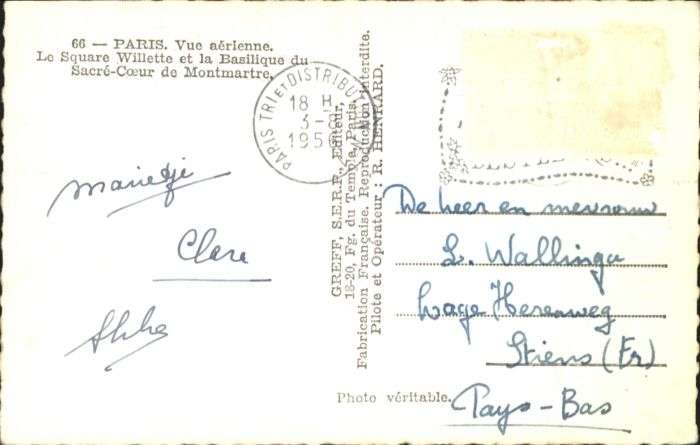 66 — PARIS. Vue aérienne.
Le Square Willette et la Basilique du
Sacré-Cœur de Montmartre.
PARIS TRI ET DISTRIBU
18 H
3-
195
GREFF, S.E.R.P., Editeur,
18-20, Fg. du Temple, Paris.
Fabrication Française. Reproduction interdite.
Pilote et Opérateur : R. HENRARD.
Mariedje
Clara
De heer en mevrouw
L. Wallinga
Lage Herenweg
Stiens (Fr)
Pays-Bas
Photo véritable.